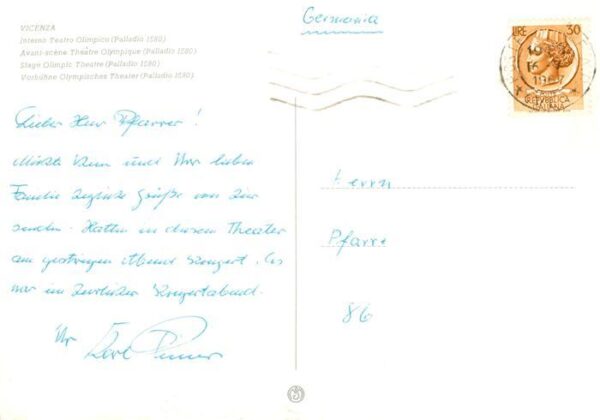 VICENZA
Interno Teatro Olimpico (Palladio 1580)
Avant-scène Théâtre Olympique (Palladio 1580)
Stage Olimpic Theatre (Palladio 1580)
Vorbühne Olympisches Theater (Palladio 1580)
Germania
LIRE 30
POSTE
REPVBBLICA
ITALIANA
Lieber Herr Pfarrer!
Möchte Ihnen und Ihrer lieben
Familie Grüße von
senden. Hatten in diesem Theater
am gestrigen Abend Konzert. Es
war ein herrlicher Konzertabend.
Ihr
Karl
Herrn
Pfarre
86